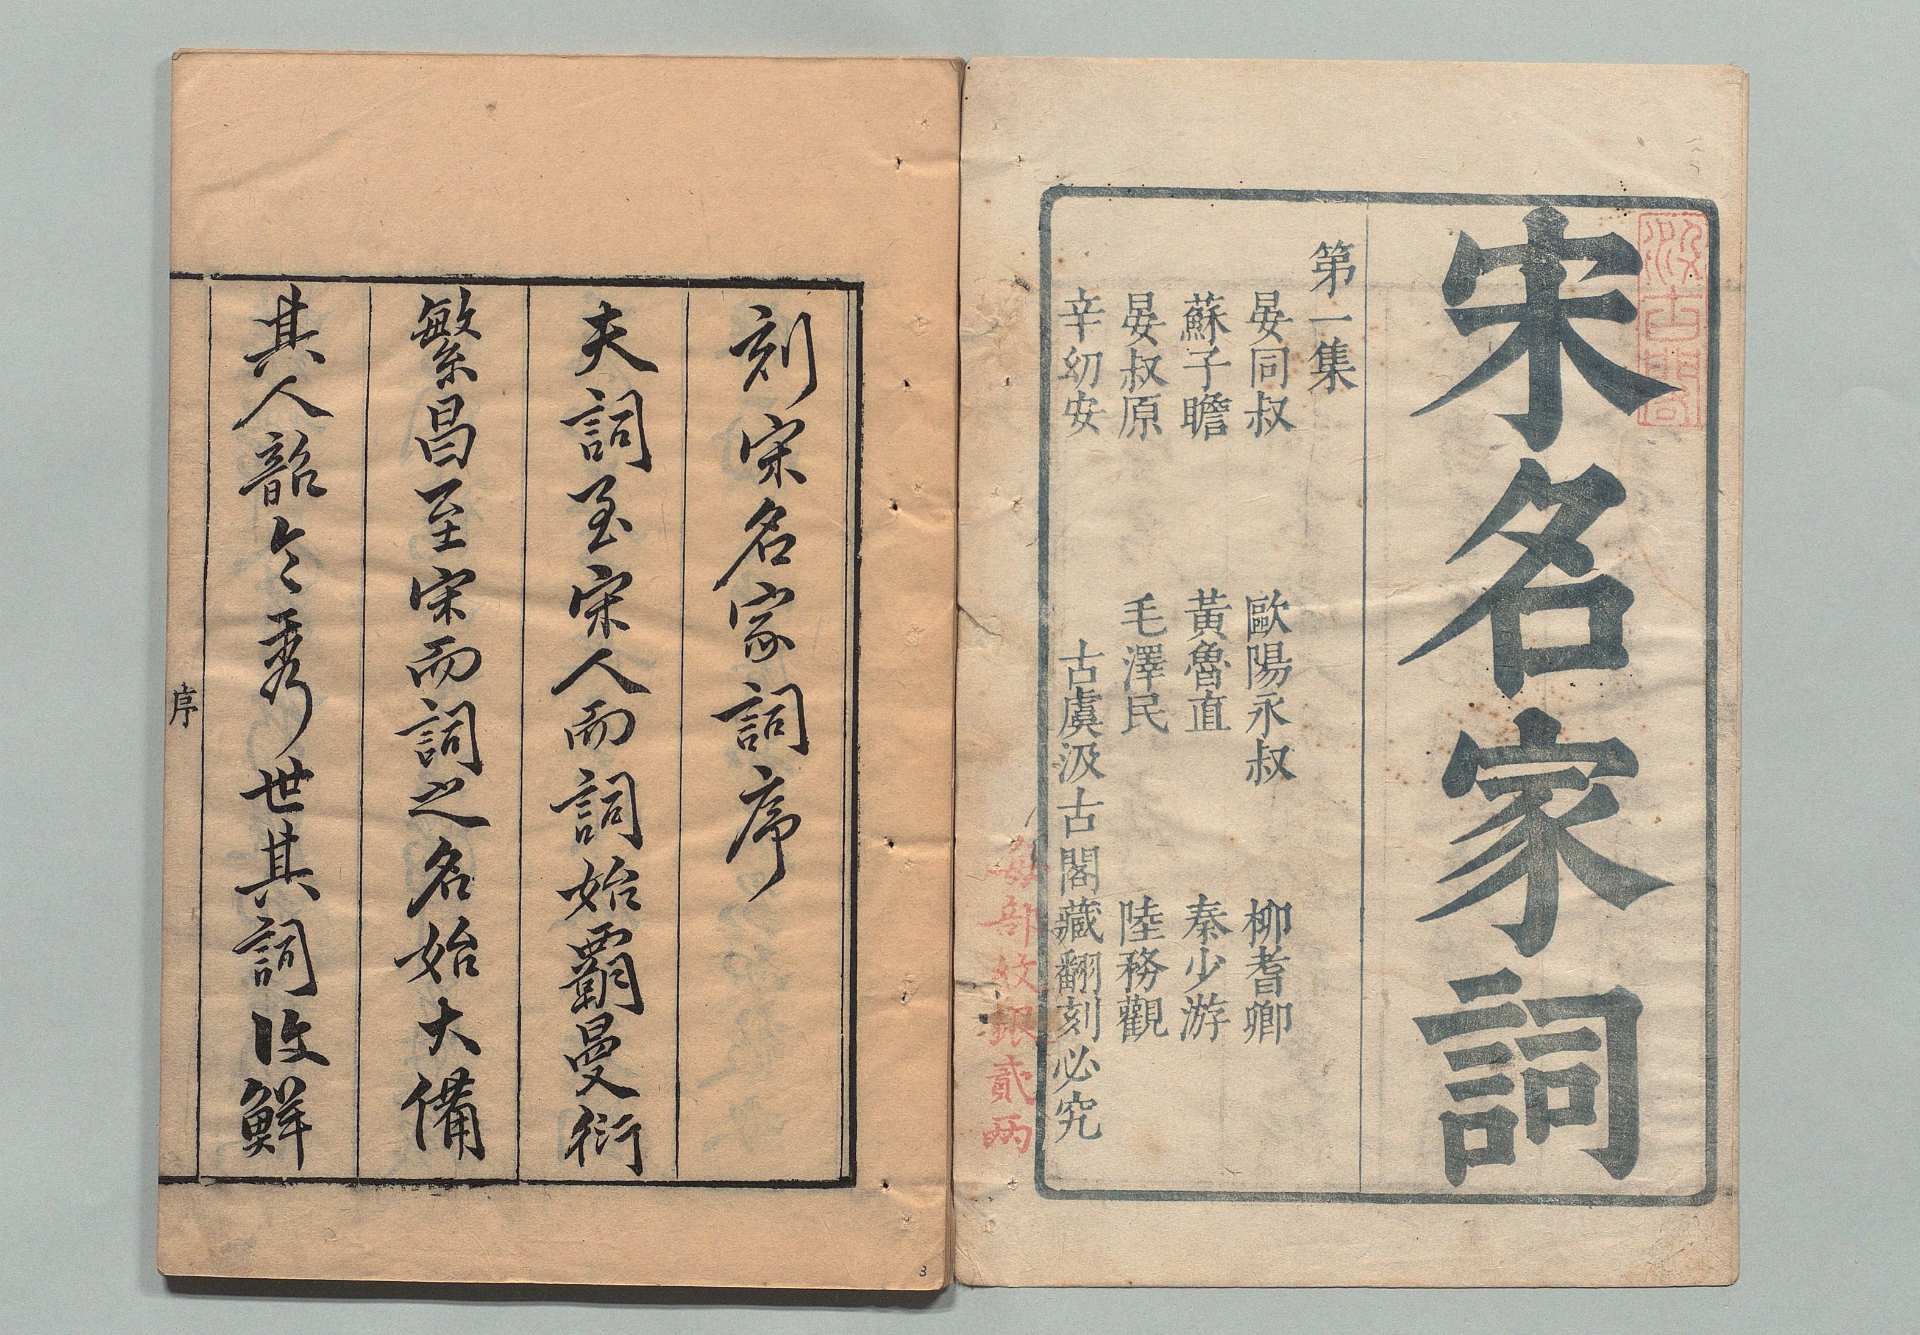 宋名家詞
汲古閣
第一集
晏同叔 歐陽永叔 柳耆卿
蘇子瞻 黃魯直 秦少游
晏叔原 毛澤民 陸務觀
辛幼安 古虞汲古閣藏翻刻必究
每部紋銀貳兩
刻宋名家詞序
夫詞至宋人而詞始霸曼衍
繁昌至宋而詞之名始大備
其人韶令秀世其詞復鮮
序
3